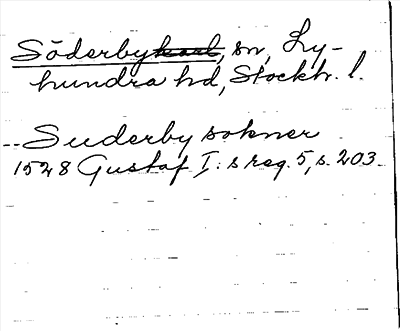 Söderbykarl, sn, Ly-
hundra hd, Stockh. l.
Suderby sokner
1528 Gustaf I:s reg. 5, s. 203.